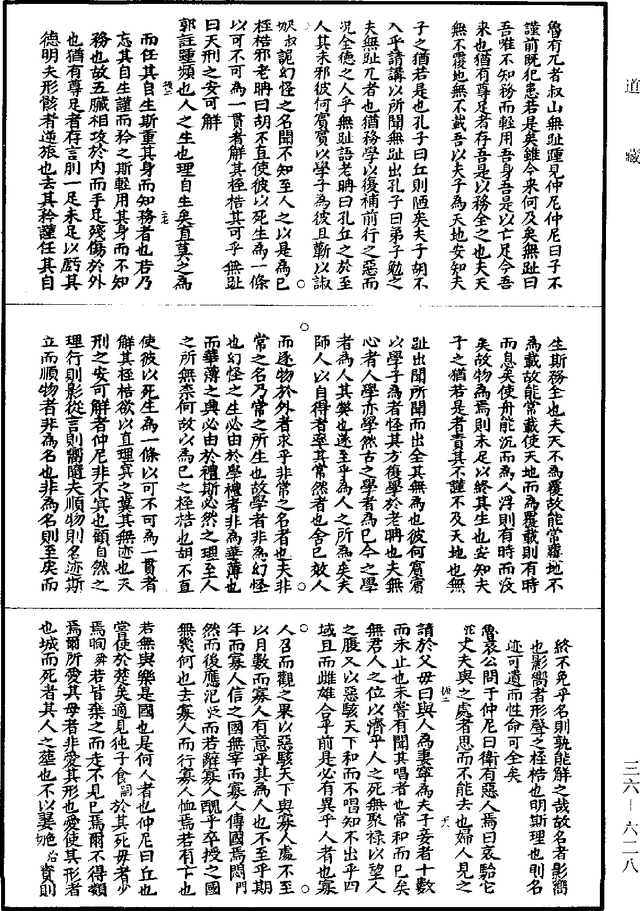 道藏
魯有兀者叔山無趾踵見仲尼仲尼曰子不
謹前既犯患若是矣雖今來何及矣無趾曰
吾唯不知務而輕用吾身吾是以亡足今吾
來也猶有尊足者存吾是以務全之也夫天
無不覆地無不載吾以夫子為天地安知夫
子之猶若是也孔子曰丘則陋矣夫子胡不
入乎請講以所聞無趾出孔子曰弟子勉之
夫無趾兀者也猶務學以復補前行之惡而
況全德之人乎無趾語老聃曰孔丘之於至
人其未邪彼何賓賓以學子為彼且蘄以諔
詭幻怪之名聞不知至人之以是為己
桎梏邪老聃曰胡不直使彼以死生為一條
以可不可為一貫者解其桎梏其可乎無趾
曰天刑之安可解
郭註踵頻也人之生也理自生矣直莫之為
而任其自生斯重其身而知務者也若乃
忘其自生謹而矜之斯輕用其身而不知
務也故五臟相攻於內而手足殘傷於外
也猶有尊足者存言刖一足未足以虧其
德明夫形骸者逆旅也去其矜謹任其自
生斯務全也夫天不為覆故能常覆地不
為載故能常載使天地而為覆載則有時
而息矣使舟能沉而為人浮則有時而沒
矣故物為焉則未足以終其生也安知夫
子之猶若是者責其不謹不及天地也無
趾出聞所聞而出全其無為也彼何賓賓
以學子為者怪其方復學於老聃也夫無
心者人學亦學然古之學者為己今之學
者為人其弊也遂至乎為人之所為矣夫
師人以自得者率其常然者也舍己效人
而逐物於外者求乎非常之名者也夫非
常之名乃常之所生也故學者非為幻怪
也幻怪之生必由於學禮者非為華薄也
而華薄之興必由於禮斯必然之理至人
之所無柰何故以為己之桎梏也胡不直
使彼以死生為一條以可不可為一貫者
解其桎梏欲以直理冥之冀其無迹也天
刑之安可解者仲尼非不冥也顧自然之
理行則影從言則嚮隨夫順物則名迹斯
立而順物者非為名也非為名則至矣而
終不免乎名則孰能解之哉故名者影嚮
也影嚮者形聲之桎梏也明斯理也則名
迹可遺而性命可全矣
魯哀公問于仲尼曰衛有惡人焉曰哀駘它
丈夫與之處者思而不能去也婦人見之
請於父母曰與人為妻寧為夫子妾者十數
而未止也未嘗有聞其唱者也常和而已矣
無君人之位以濟乎人之死無聚祿以望人
之腹又以惡駭天下和而不唱知不出乎四
域且而雌雄合乎前是必有異乎人者也寡
人召而觀之果以惡駭天下與寡人處不至
以月數而寡人有意乎其為人也不至乎期
年而寡人信之國無宰而寡人傳國焉悶
然而後應氾而若辭寡人醜乎卒授之國
無幾何也去寡人而行寡人恤焉若有亡也
若無與樂是國也是何人者也仲尼曰丘也
嘗使於楚矣適見㹠子食於其死母者少
焉眴若皆棄之而走不見己焉爾不得類
焉爾所愛其母者非愛其形也愛使其形者
也戰而死者其人之葬也不以翣資則
三六—六二八